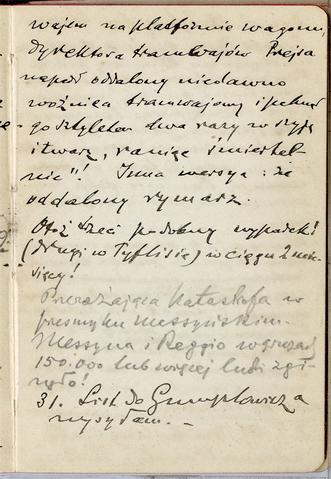 wajem na platformie wagonu,
dyrektora tramwajów Prejsa
napadł oddalony niedawno
woźnica tramwajowy i pchnął
go sztyletem dwa razy w szyję
i twarz, raniąc śmiertel-
nie"! Inna wersya: że
oddalony rymarz.
Otóż trzeci podobny wypadek!
(drugi w Tyflisie) w ciągu 2 mie-
sięcy!
Przerażająca katastrofa w
przesmyku Messyńskim.
Messyna i Reggio w gruzach
150.000 lub więcej ludzi zgi-
nęło!
31. List do Gumplowicza
wysyłam. –